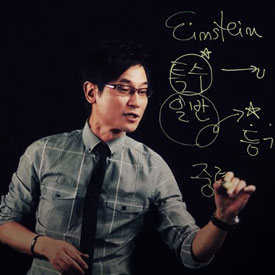 Einstein
특수 → v
일반
중력